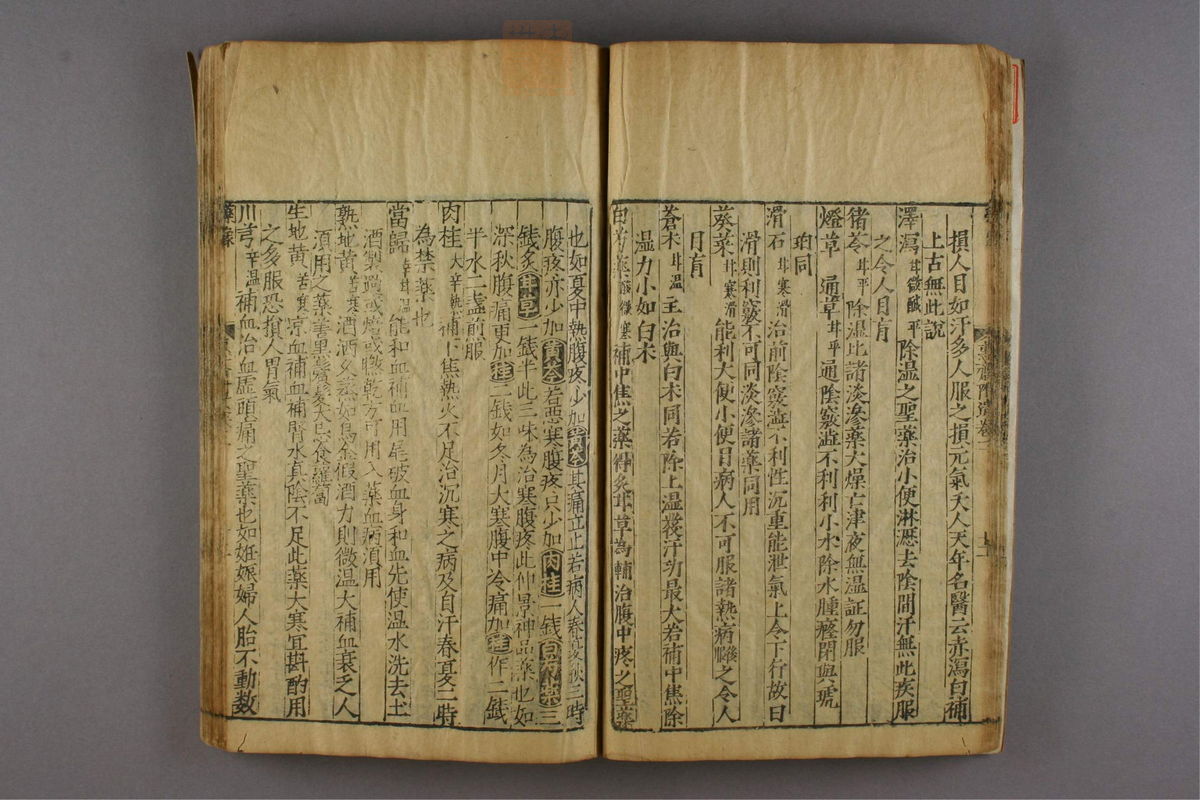 損人目如汗多人服之損元氣夭人天年名醫云赤瀉白補
上古無此說
澤瀉甘微鹹平除温之聖藥治小便淋瀝去陰間汗無此疾服
之令人目盲
猪苓甘平除温比諸淡滲藥大燥亡津夜無温証勿服
燈草 通草甘平通陰竅澁不利利小水除水腫癃閉與琥
珀同
滑石甘寒滑治前陰竅澁不利性沉重能泄氣上令下行故曰
滑則利竅不可同淡滲諸藥同用
葵菜甘寒滑能利大便小便目病人不可服諸熱病後之令人
目盲
蒼朮甘温主治與白朮同若除上温發汗功最大若補中焦除
温力小如白朮
白芍藥酸微寒補中焦之藥得炙甘草為輔治腹中疼之聖藥
也如夏中熱腹疼少加黄芩其痛立止若病人春夏秋三時
腹疼亦少加黄芩若惡寒腹疼只少加肉桂一錢白芍藥三
錢炙甘草一錢半此三味為治寒腹疼此仲景神品藥也如
深秋腹痛更加桂二錢如冬月大寒腹中冷痛加桂作二錢
半水二盞煎服
肉桂大辛熱補下焦熱火不足治沉寒之病及自汗春夏二時
為禁藥也
當歸辛甘温能和血補血用尾破血身和血先使温水洗去土
酒製過或焙或晒乾方可用入藥血病湏用
熟地黄苦寒酒洒久蒸如烏金假酒力則微温大補血衰乏人
湏用之藥
生地黄苦寒凉血補血補腎水真陰不足此藥大寒宜斟酌用
之多服恐損人胃氣
川芎辛温補血治血虚頭痛之聖藥也如姙娠婦人胎不動数